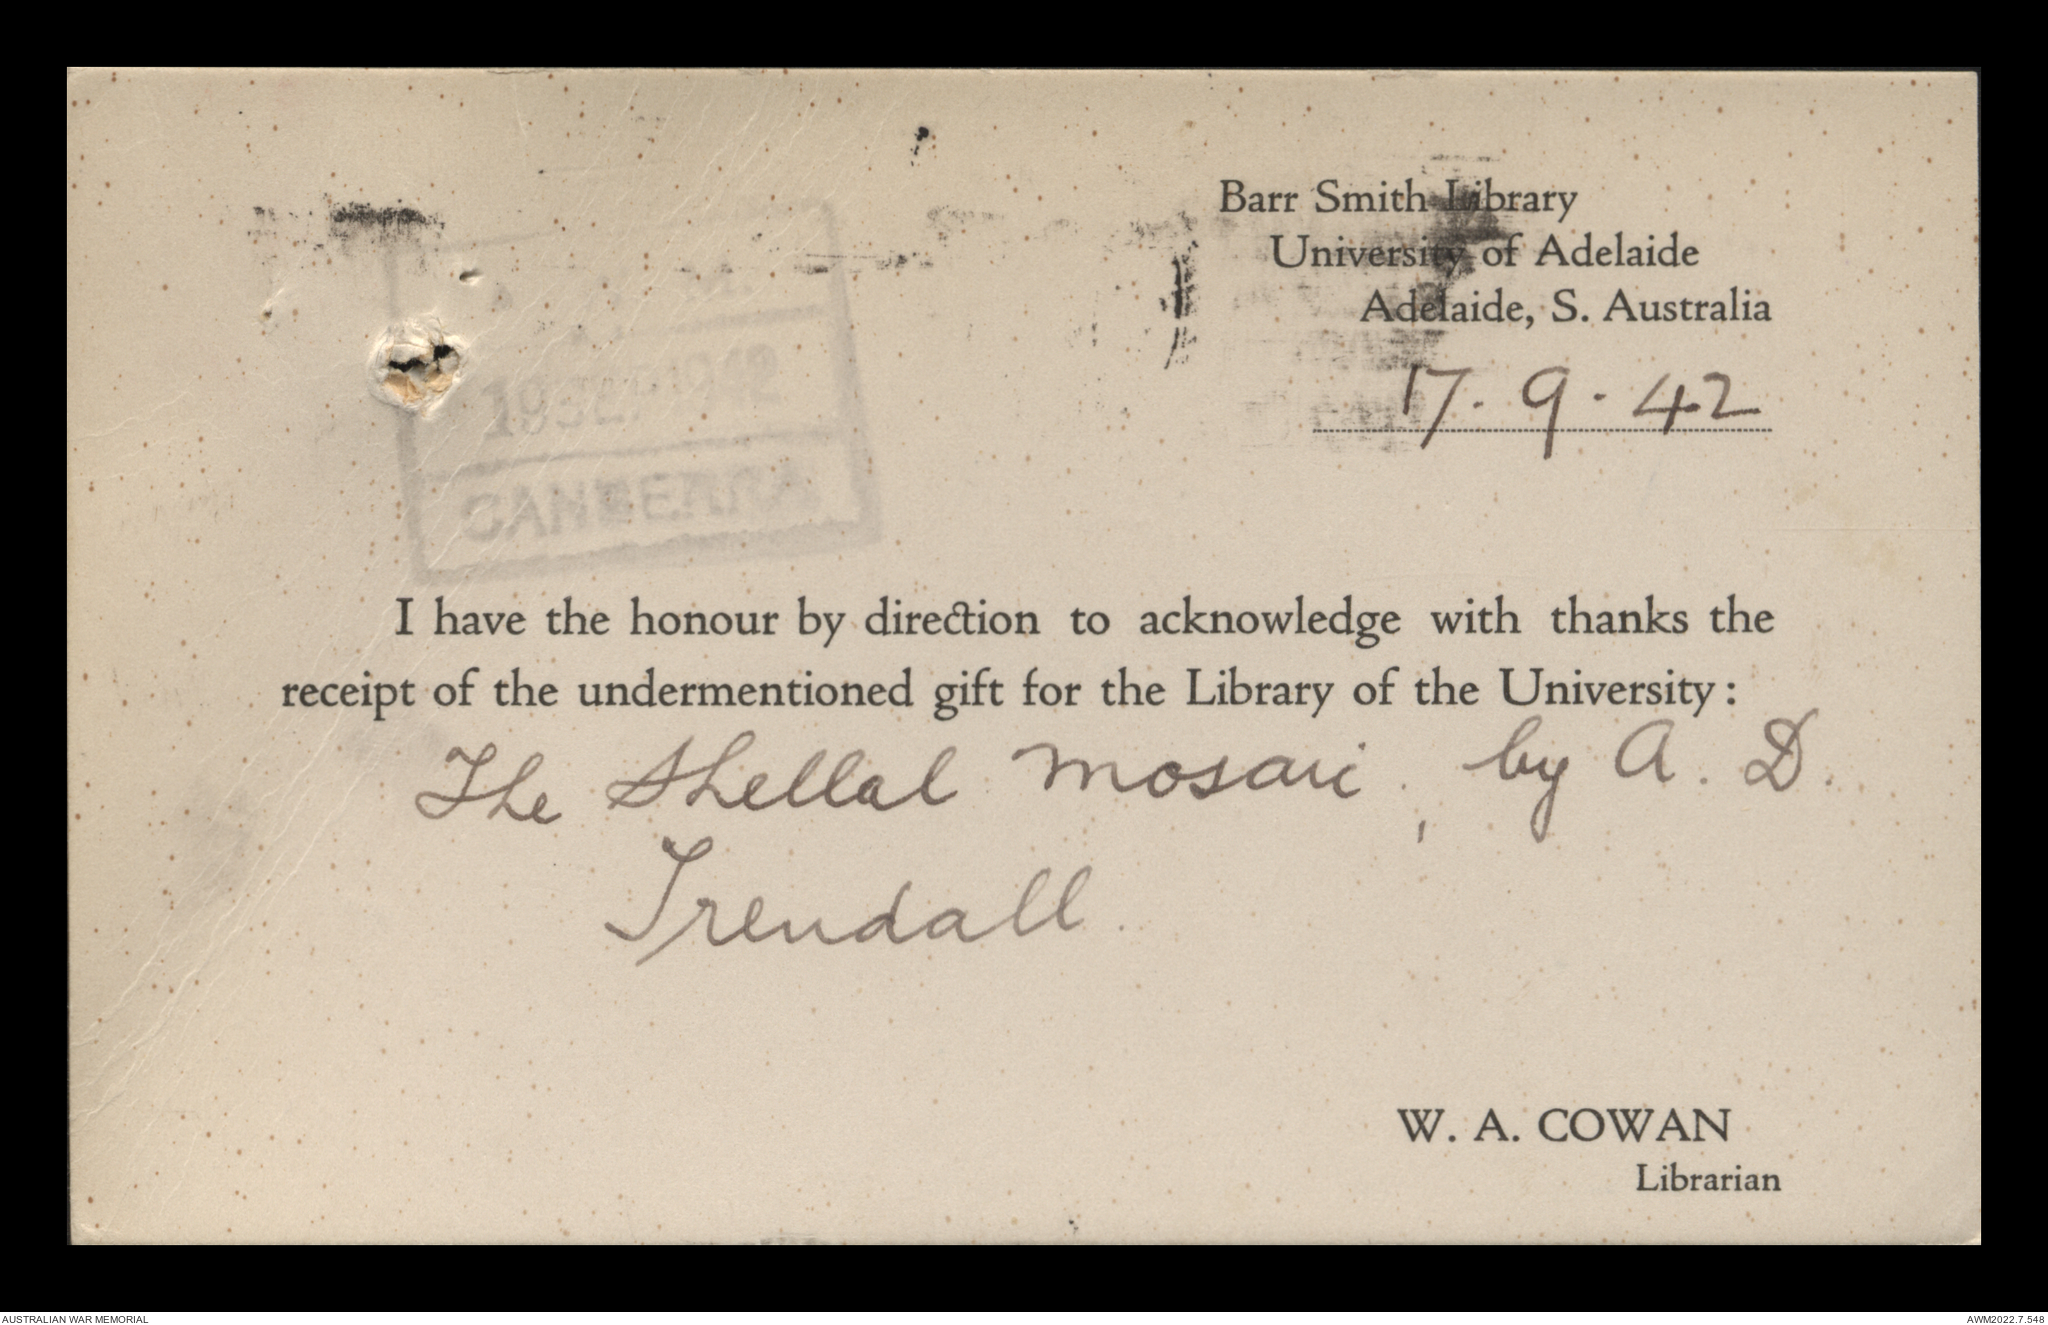 Barr Smith Library
University of Adelaide
Adelaide, S. Australia
17. 9. 42
19 SEP 1942
CANBERRA
I have the honour by direction to acknowledge with thanks the
receipt of the undermentioned gift for the Library of the University:
The Shellal Mosaic, by A. D.
Trendall.
W. A. COWAN
Librarian
AUSTRALIAN WAR MEMORIAL
AWM2022.7.548